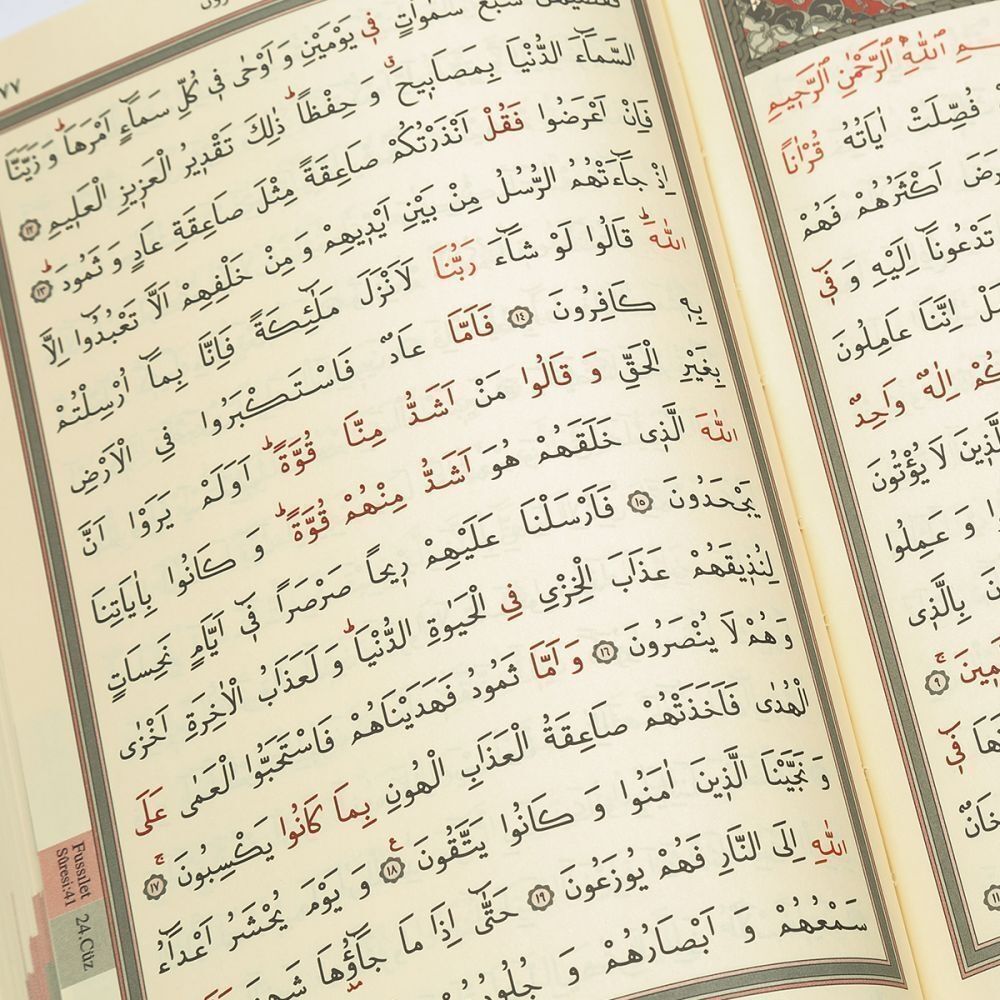 اللّٰهِ الرَّحْمٰنِ الرَّحٖيمِ
فُصِّلَتْ اٰيَاتُهُ قُرْاٰناً
اَكْثَرُهُمْ فَهُمْ
تَدْعُونَٓا اِلَيْهِ وَ فٖٓي
اِنَّنَا عَامِلُونَ
اِلٰهٌ وَاحِدٌ
لَا يُؤْتُونَ
وَ عَمِلُوا
بِالَّذٖى
٩
فٖي
سَبْعَ سَمٰوَاتٍ فٖي يَوْمَيْنِ وَ اَوْحٰى فٖي كُلِّ سَمَٓاءٍ اَمْرَهَاۜ وَ زَيَّنَّا
السَّمَٓاءَ الدُّنْيَا بِمَصَابٖيحَۗ وَ حِفْظاًۜ ذٰلِكَ تَقْدٖيرُ الْعَزٖيزِ الْعَلٖيمِ ١٢
فَاِنْ اَعْرَضُوا فَقُلْ اَنْذَرْتُكُمْ صَاعِقَةً مِثْلَ صَاعِقَةِ عَادٍ وَ ثَمُودَۜ ١٣
اِذْ جَٓاءَتْهُمُ الرُّسُلُ مِنْ بَيْنِ اَيْدٖيهِمْ وَ مِنْ خَلْفِهِمْ اَلَّا تَعْبُدُٓوا اِلَّا
اللّٰهَۜ قَالُوا لَوْ شَٓاءَ رَبُّنَا لَاَنْزَلَ مَلٰٓئِكَةً فَاِنَّا بِمَٓا اُرْسِلْتُمْ
بِهٖ كَافِرُونَ ١٤ فَاَمَّا عَادٌ فَاسْتَكْبَرُوا فِي الْاَرْضِ
بِغَيْرِ الْحَقِّ وَ قَالُوا مَنْ اَشَدُّ مِنَّا قُوَّةًۜ اَوَلَمْ يَرَوْا اَنَّ
اللّٰهَ الَّذٖى خَلَقَهُمْ هُوَ اَشَدُّ مِنْهُمْ قُوَّةًۜ وَ كَانُوا بِاٰيَاتِنَا
يَجْحَدُونَ ١٥ فَاَرْسَلْنَا عَلَيْهِمْ رٖيحاً صَرْصَراً فٖٓي اَيَّامٍ نَحِسَاتٍ
لِنُذٖيقَهُمْ عَذَابَ الْخِزْيِ فِي الْحَيٰوةِ الدُّنْيَاۜ وَ لَعَذَابُ الْاٰخِرَةِ اَخْزٰى
وَ هُمْ لَا يُنْصَرُونَ ١٦ وَ اَمَّا ثَمُودُ فَهَدَيْنَاهُمْ فَاسْتَحَبُّوا الْعَمٰى عَلَى
الْهُدٰى فَاَخَذَتْهُمْ صَاعِقَةُ الْعَذَابِ الْهُونِ بِمَا كَانُوا يَكْسِبُونَۚ ١٧
وَ نَجَّيْنَا الَّذٖينَ اٰمَنُوا وَ كَانُوا يَتَّقُونَ ١٨ وَ يَوْمَ يُحْشَرُ اَعْدَٓاءُ
اللّٰهِ اِلَى النَّارِ فَهُمْ يُوزَعُونَ ١٩ حَتّٰٓى اِذَا مَا جَٓاؤُ۫هَا
سَمْعُهُمْ وَ اَبْصَارُهُمْ وَ
Fussılet
Sûresi:41
24.Cüz